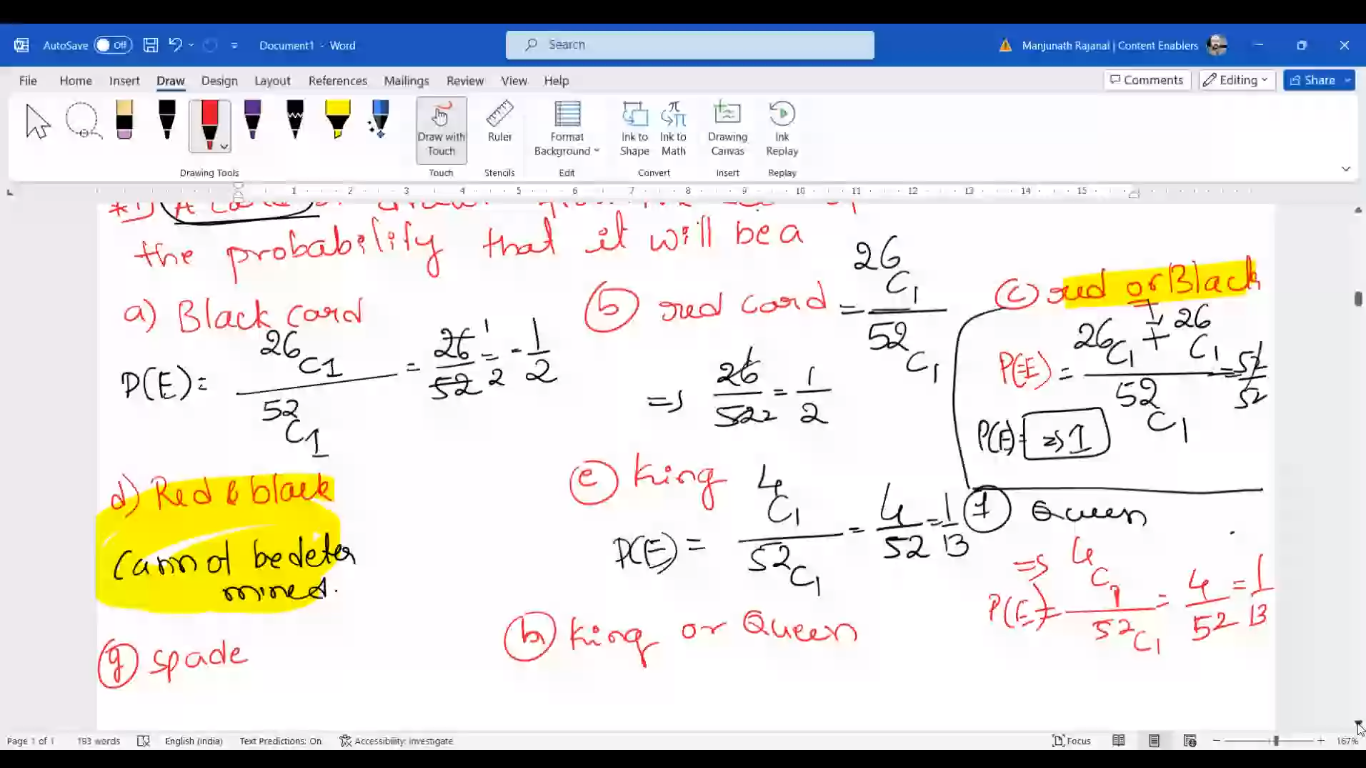 AutoSave Off Document1 - Word Search Manjunath Rajanal | Content Enablers
File Home Insert Draw Design Layout References Mailings Review View Help Comments Editing Share
Draw with Touch Ruler Format Background Ink to Shape Ink to Math Drawing Canvas Ink Replay
Drawing Tools Touch Stencils Edit Convert Insert Replay
1 2 3 4 5 6 7 8 9 10 11 12 13 14 15
the probability that it will be a
a) Black card
P(E) = 26C1 / 52C1 = 26/52 = 1/2 = 1/2
b red card = 26C1 / 52C1
⇒ 26/52 = 1/2
c red or Black
P(E) = 26C1 + 26C1 / 52C1 = 52/52
P(E) = ⇒ 1
d) Red & black
Cannot be deter
mined.
e King
P(E) = 4C1 / 52C1 = 4/52 = 1/13
f Queen
⇒
P(E) = 4C1 / 52C1 = 4/52 = 1/13
g spade
h King or Queen
Page 1 of 1 193 words English (India) Text Predictions: On Accessibility: Investigate Focus 167%